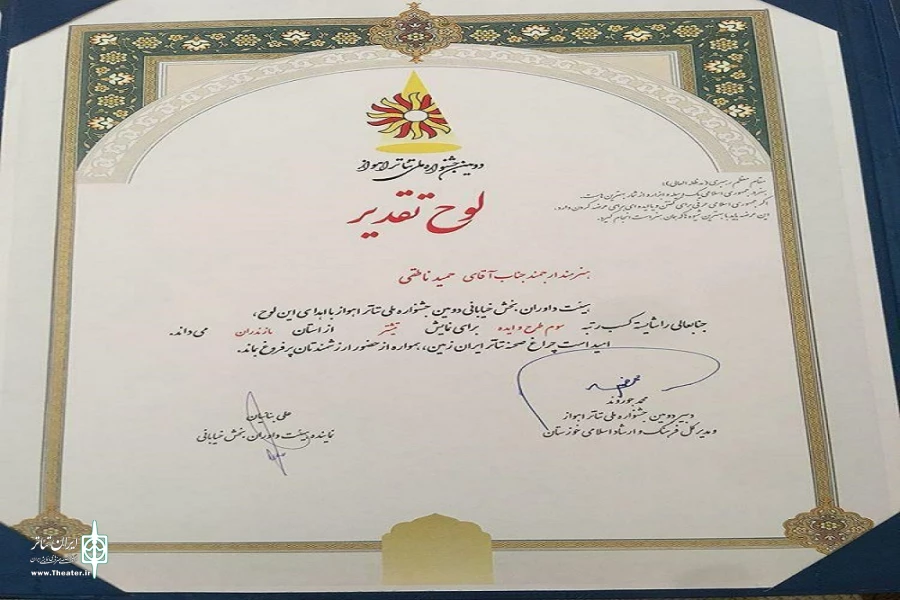 دومین جشنواره ملی تئاتر اهواز
لوح تقدیر
مقام معظم رهبری (مدظله العالی):
هنرمند ارجمند جناب آقای حمید ناطقی
هیئت داوران، بخش خیابانی دومین جشنواره ملی تئاتر اهواز با اهدای این لوح،
جنابعالی را شایسته کسب رتبه سوم طرح و ایده برای نمایش تیشتر از استان مازندران می‌داند.
امید است چراغ صحنه تئاتر ایران زمین، همواره از حضور ارزشمندتان پر فروغ بماند.
محمد جوروند
دبیر دومین جشنواره ملی تئاتر اهواز
و مدیر کل فرهنگ و ارشاد اسلامی خوزستان
علی بنائیان
نماینده هیئت داوران بخش خیابانی
ایران تئاتر
www.Theater.ir